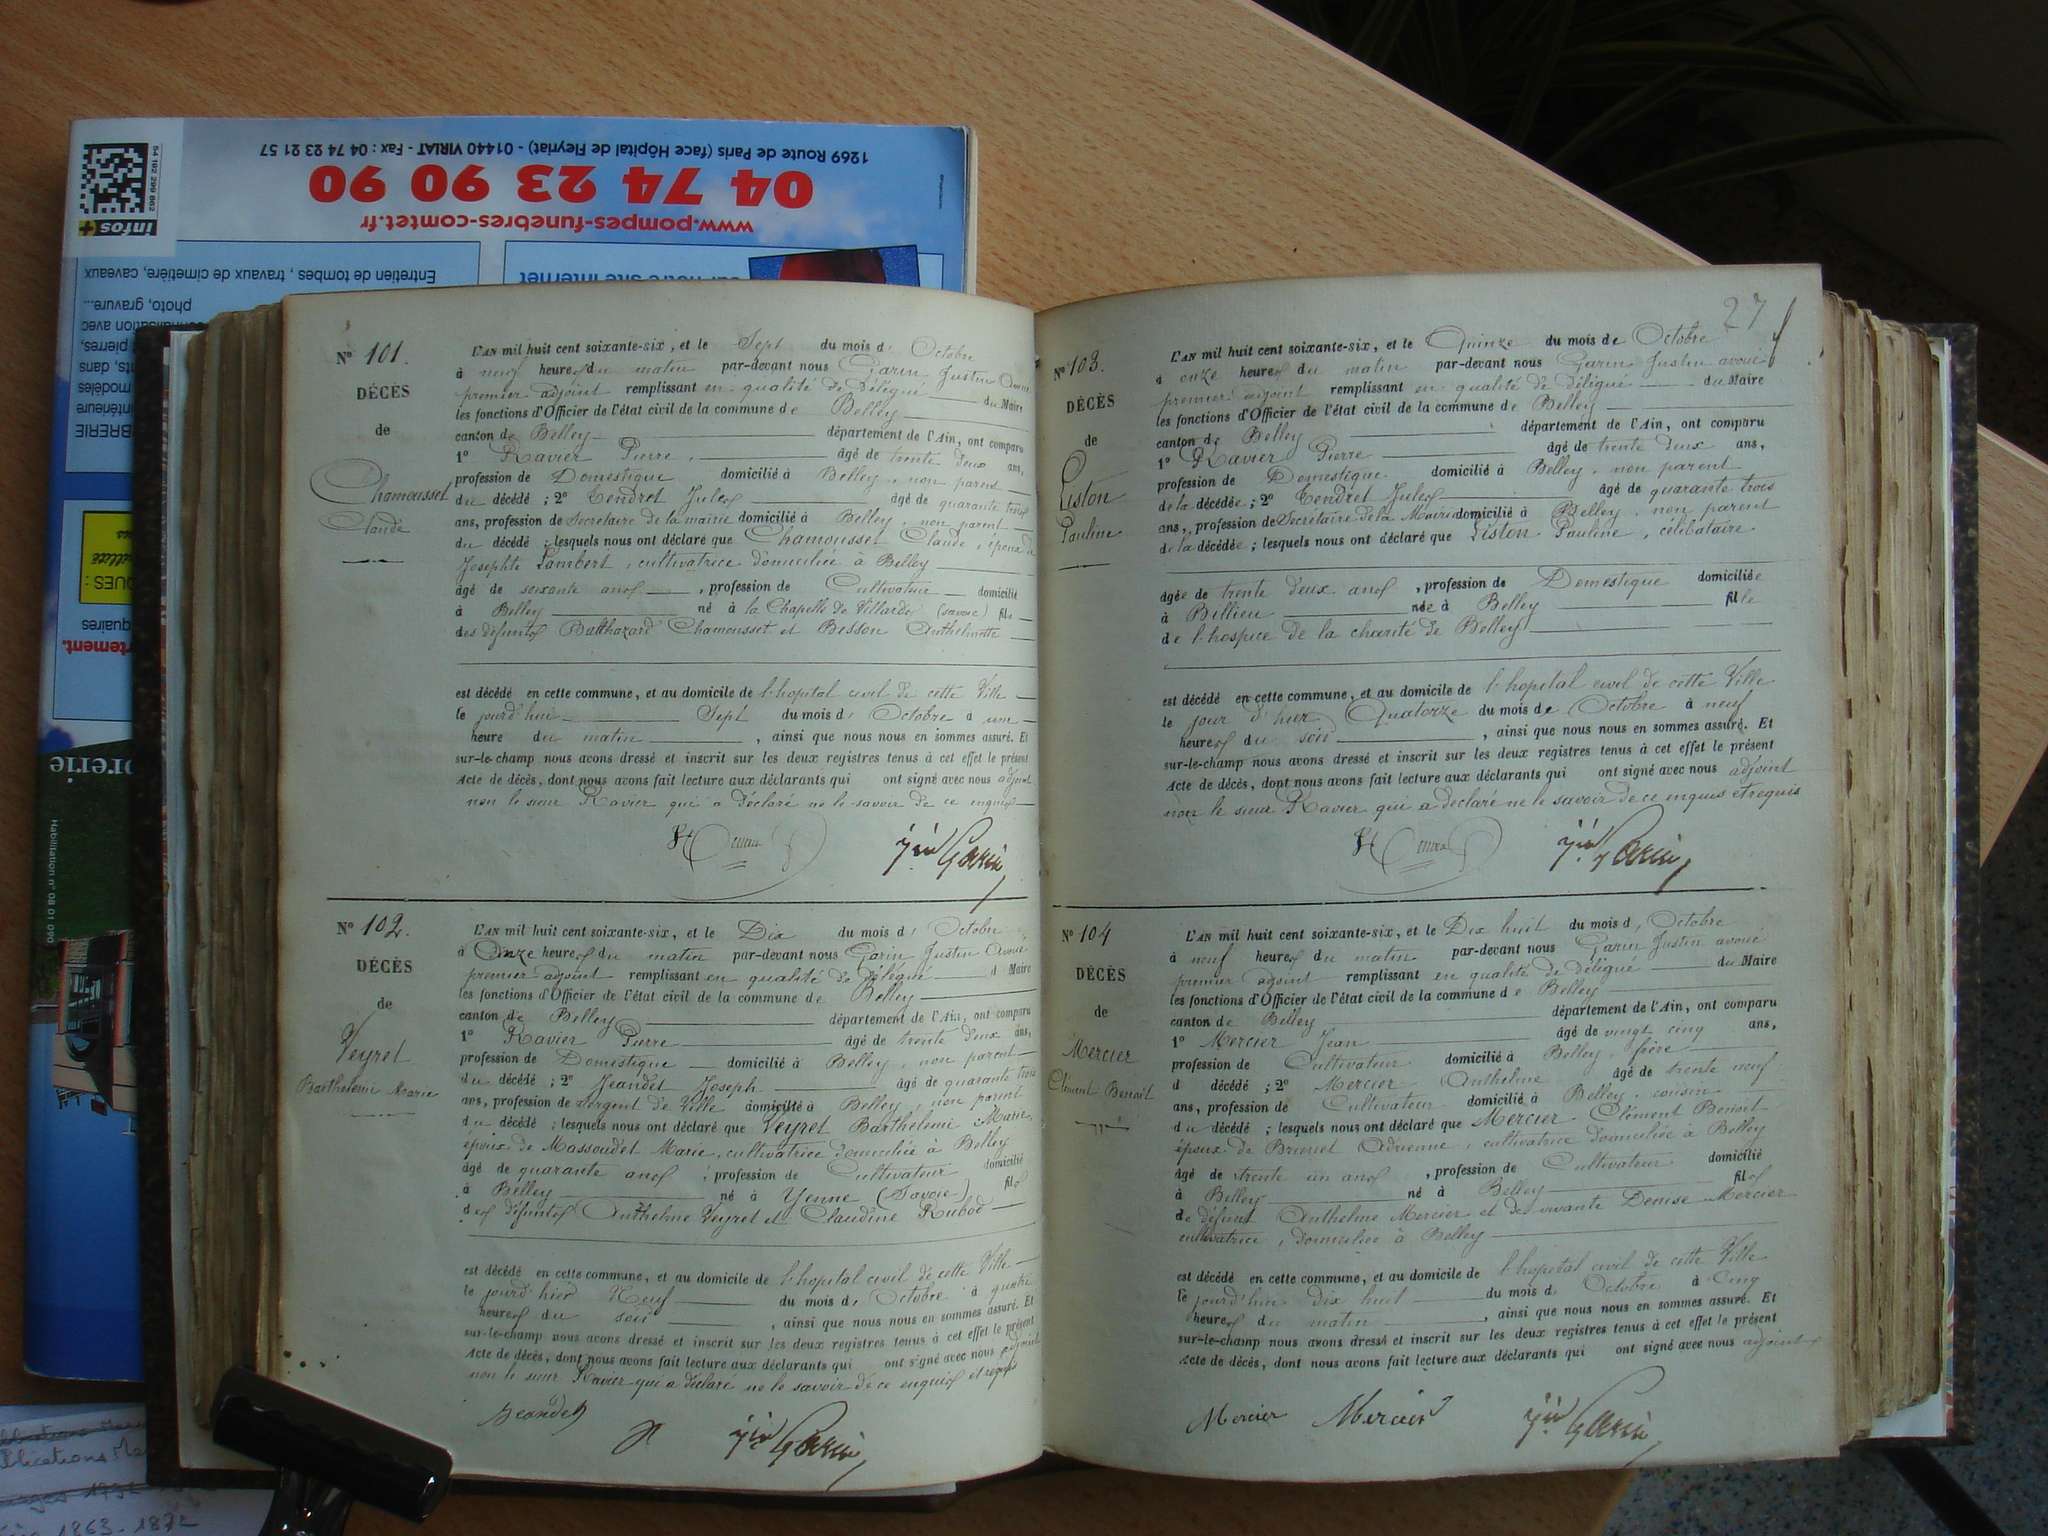 54 192 299 862
infos+
1269 Route de Paris (face Hôpital de Fleyriat) - 01440 VIRIAT - Fax : 04 74 23 21 57
04 74 23 90 90
www.pompes-funebres-comtet.fr
Entretien de tombes, travaux de cimetière, caveaux
photo, gravure...
sur notre site internet
Habilitation n° 08 01 090
1863-1872
N° 101.
DÉCÈS
de
Chamousset
Claude
L'AN mil huit cent soixante-six, et le Sept du mois d' Octobre
à neuf heures du matin par-devant nous Garin Justin Avoué
premier adjoint remplissant en qualité de délégué du Maire
les fonctions d'Officier de l'état civil de la commune de Belley
canton de Belley département de l'Ain, ont comparu
1° Ravier Pierre, âgé de trente deux ans,
profession de Domestique domicilié à Belley, non parent
du décédé ; 2° Tendret Jules âgé de quarante trois
ans, profession de Secrétaire de la mairie domicilié à Belley, non parent
du décédé ; lesquels nous ont déclaré que Chamousset Claude, époux de
Josephte Lambert, cultivatrice domiciliée à Belley
âgé de soixante ans, profession de Cultivateur domicilié
à Belley né à la Chapelle de Villardo (savoie) fils
des défunts Balthazard Chamousset et Besson Anthelmette
est décédé en cette commune, et au domicile de l'hopital civil de cette Ville
le jourd'hui Sept du mois d' Octobre à une
heure du matin, ainsi que nous nous en sommes assuré. Et
sur-le-champ nous avons dressé et inscrit sur les deux registres tenus à cet effet le présent
Acte de décès, dont nous avons fait lecture aux déclarants qui ont signé avec nous adjoint
non le sieur Ravier qui a déclaré ne le savoir de ce enquis
Jin Garin
N° 102.
DÉCÈS
de
Veyret
Barthelemi Marie
L'AN mil huit cent soixante-six, et le Dix du mois d' Octobre
à Onze heures du matin par-devant nous Garin Justin Avoué
premier adjoint remplissant en qualité de délégué d Maire
les fonctions d'Officier de l'état civil de la commune de Belley
canton de Belley département de l'Ain, ont comparu
1° Ravier Pierre âgé de trente deux ans,
profession de Domestique domicilié à Belley, non parent
du décédé ; 2° Jeandet Joseph âgé de quarante trois
ans, profession de Sergent de Ville domicilié à Belley, non parent
du décédé ; lesquels nous ont déclaré que Veyret Barthelemi Marie
époux de Massoudet Marie, cultivatrice domiciliée à Belley
âgé de quarante ans, profession de Cultivateur domicilié
à Belley né à Yenne (Savoie) fils
des défunts Anthelme Veyret et Claudine Rubod
est décédé en cette commune, et au domicile de l'hopital civil de cette Ville
le jourd'hier Neuf du mois d' Octobre à quatre
heures du soir, ainsi que nous nous en sommes assuré. Et
sur-le-champ nous avons dressé et inscrit sur les deux registres tenus à cet effet le présent
Acte de décès, dont nous avons fait lecture aux déclarants qui ont signé avec nous adjoint
non le sieur Ravier qui a déclaré ne le savoir de ce enquis et requis
Jeandet
Jin Garin
27
N° 103.
DÉCÈS
de
Liston
Pauline
L'AN mil huit cent soixante-six, et le Quinze du mois de Octobre
à onze heures du matin par-devant nous Garin Justin avoué
premier adjoint remplissant en qualité de délégué du Maire
les fonctions d'Officier de l'état civil de la commune de Belley
canton de Belley département de l'Ain, ont comparu
1° Ravier Pierre âgé de trente deux ans,
profession de Domestique domicilié à Belley, non parent
de la décédée ; 2° Tendret Jules âgé de quarante trois
ans, profession de Secrétaire de la Mairie domicilié à Belley, non parent
de la décédée ; lesquels nous ont déclaré que Liston Pauline, célibataire
âgée de trente deux ans, profession de Domestique domiciliée
à Billieu née à Belley fille
de l'hospice de la charité de Belley
est décédé en cette commune, et au domicile de l'hopital civil de cette Ville
le jour d'hier Quatorze du mois de Octobre à neuf
heures du soir, ainsi que nous nous en sommes assuré. Et
sur-le-champ nous avons dressé et inscrit sur les deux registres tenus à cet effet le présent
Acte de décès, dont nous avons fait lecture aux déclarants qui ont signé avec nous adjoint
non le sieur Ravier qui a déclaré ne le savoir de ce enquis et requis
Jin Garin
N° 104
DÉCÈS
de
Mercier
Clément Benoit
L'AN mil huit cent soixante-six, et le Dix huit du mois d' Octobre
à neuf heures du matin par-devant nous Garin Justin avoué
premier adjoint remplissant en qualité de délégué du Maire
les fonctions d'Officier de l'état civil de la commune de Belley
canton de Belley département de l'Ain, ont comparu
1° Mercier Jean âgé de vingt cinq ans,
profession de Cultivateur domicilié à Belley, frère
d décédé ; 2° Mercier Anthelme âgé de trente neuf
ans, profession de Cultivateur domicilié à Belley, cousin
du décédé ; lesquels nous ont déclaré que Mercier Clément Benoit
époux de Brunet Adrienne, cultivatrice domiciliée à Belley
âgé de trente un ans, profession de Cultivateur domicilié
à Belley né à Belley fils
de défunt Anthelme Mercier et de vivante Denise Mercier
cultivatrice, domiciliée à Belley
est décédé en cette commune, et au domicile de l'hopital civil de cette Ville
le jourd'hui Dix huit du mois d' Octobre à Cinq
heures du matin, ainsi que nous nous en sommes assuré. Et
sur-le-champ nous avons dressé et inscrit sur les deux registres tenus à cet effet le présent
Acte de décès, dont nous avons fait lecture aux déclarants qui ont signé avec nous adjoint
Mercier Mercier Jin Garin